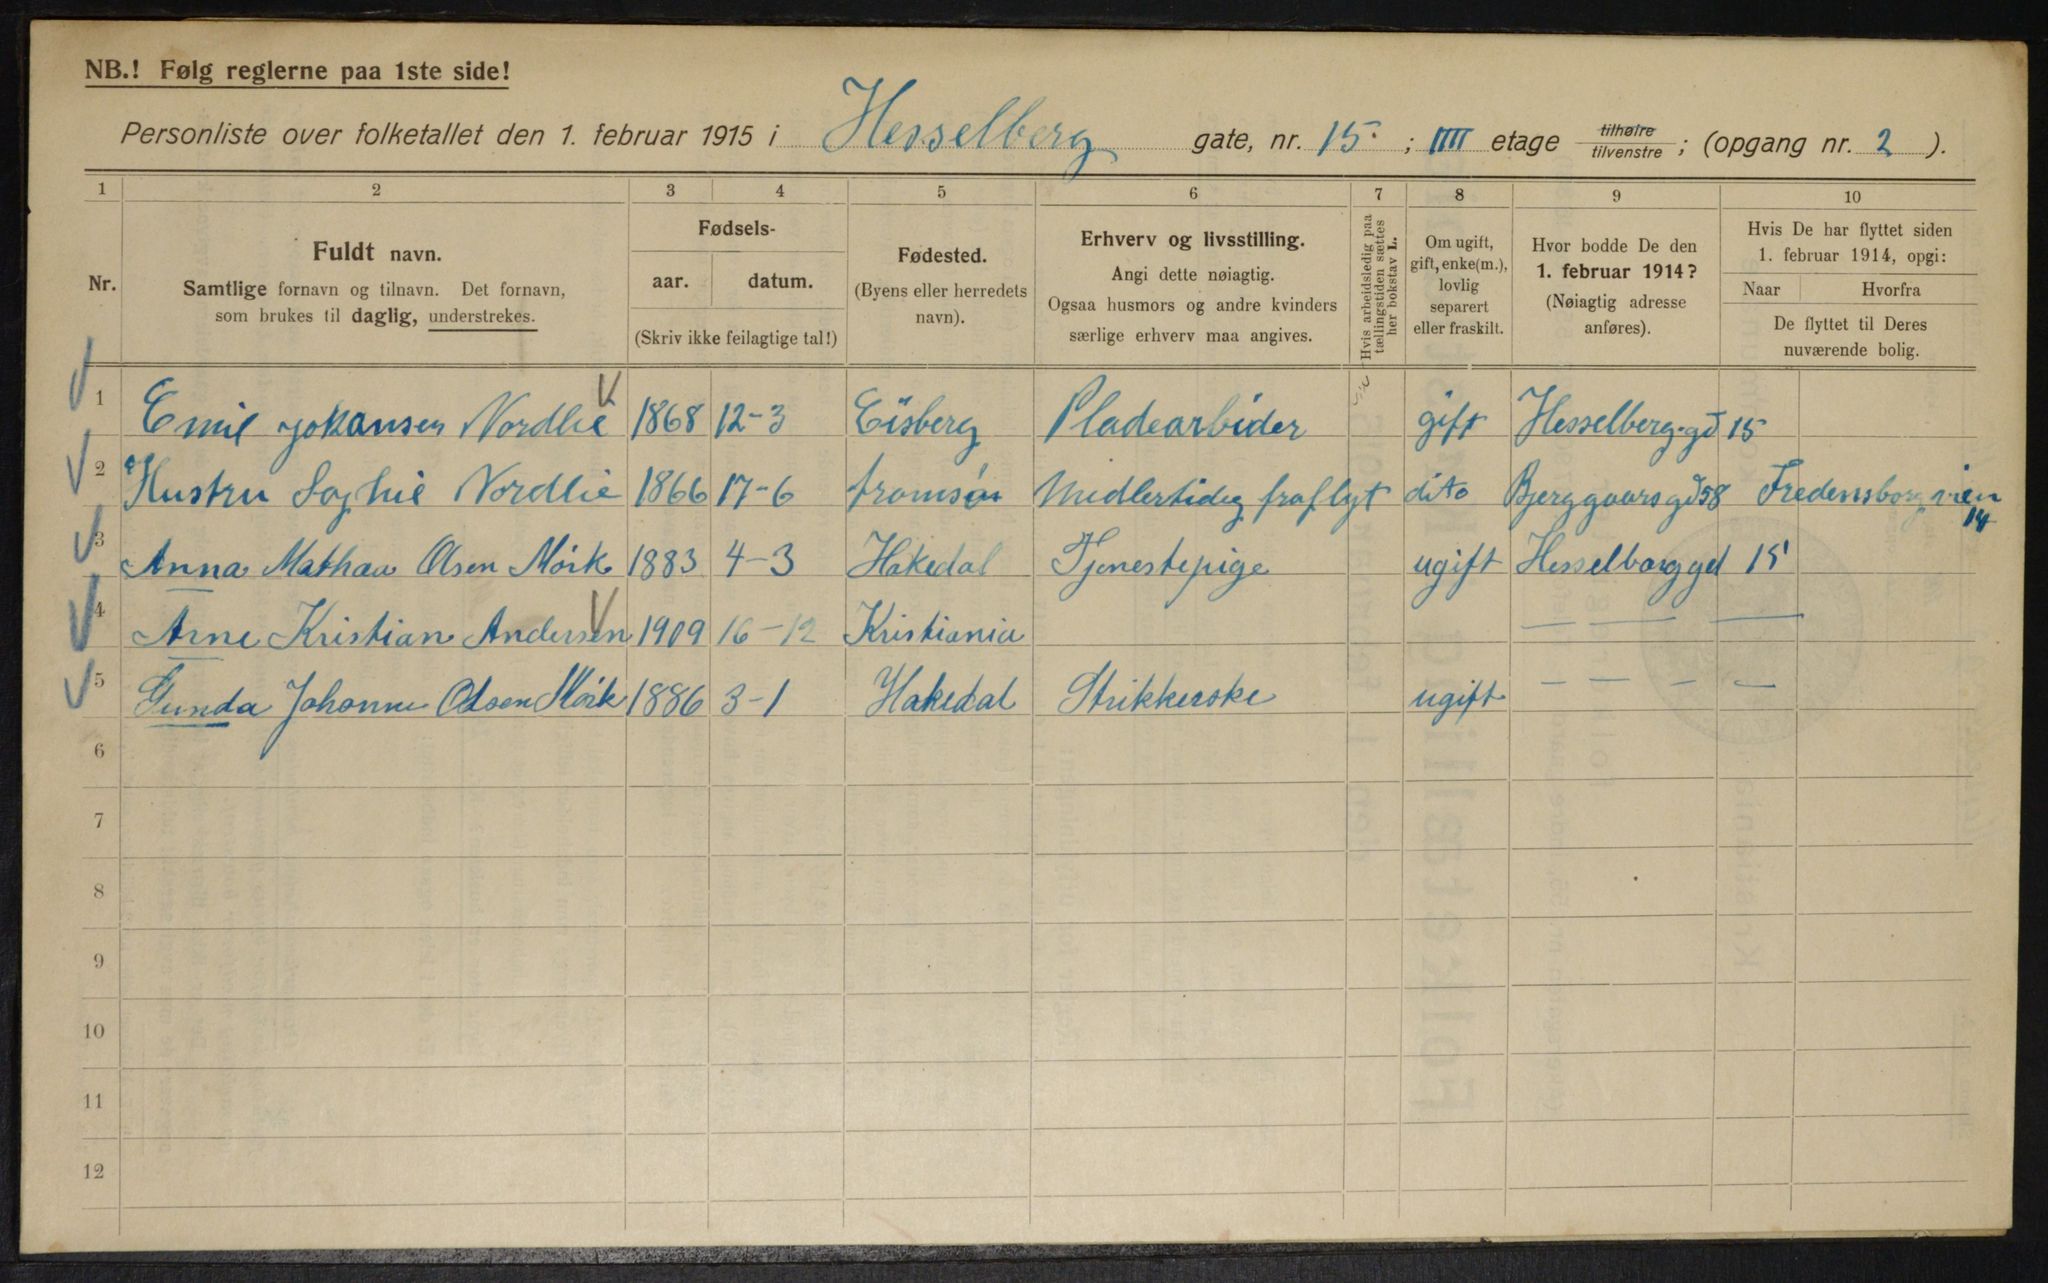 NB.! Følg reglerne paa 1ste side!
Personliste over folketallet den 1. februar 1915 i Hesselberg gate, nr. 15 ; IIII etage tilhøire tilvenstre ; (opgang nr. 2 ).
1 2 3 4 5 6 7 8 9 10
Nr.
Fuldt navn.
Samtlige fornavn og tilnavn. Det fornavn,
som brukes til daglig, understrekes.
Fødsels-
aar. datum.
(Skriv ikke feilagtige tal!)
Fødested.
(Byens eller herredets
navn).
Erhverv og livsstilling.
Angi dette nøiagtig.
Ogsaa husmors og andre kvinders
særlige erhverv maa angives.
Hvis arbeidsledig paa
tællingstiden sættes
her bokstav L.
Om ugift,
gift, enke(m.),
lovlig
separert
eller fraskilt.
Hvor bodde De den
1. februar 1914?
(Nøiagtig adresse
anføres).
Hvis De har flyttet siden
1. februar 1914, opgi:
Naar Hvorfra
De flyttet til Deres
nuværende bolig.
1 Emil Johansen Nordlie 1868 12-3 Eisberg Pladearbider gift Hesselberg.gd 15
2 Hustru Sophie Nordlie 1866 17-6 tromsön Midlertideg fraflyt dito Bjerggaarsgd 58 Fredensborg vien 14
3 Anna Mathea Olsen Mörk 1883 4-3 Hakedal Tjenestepige ugift Hesselbarg gd 15
4 Arne Kristian Andersen 1909 16-12 Kristiania — — — —
5 Gunda Johanne Olsen Mörk 1886 3-1 Hakedal Strikkerske ugift — — — —
6
7
8
9
10
11
12